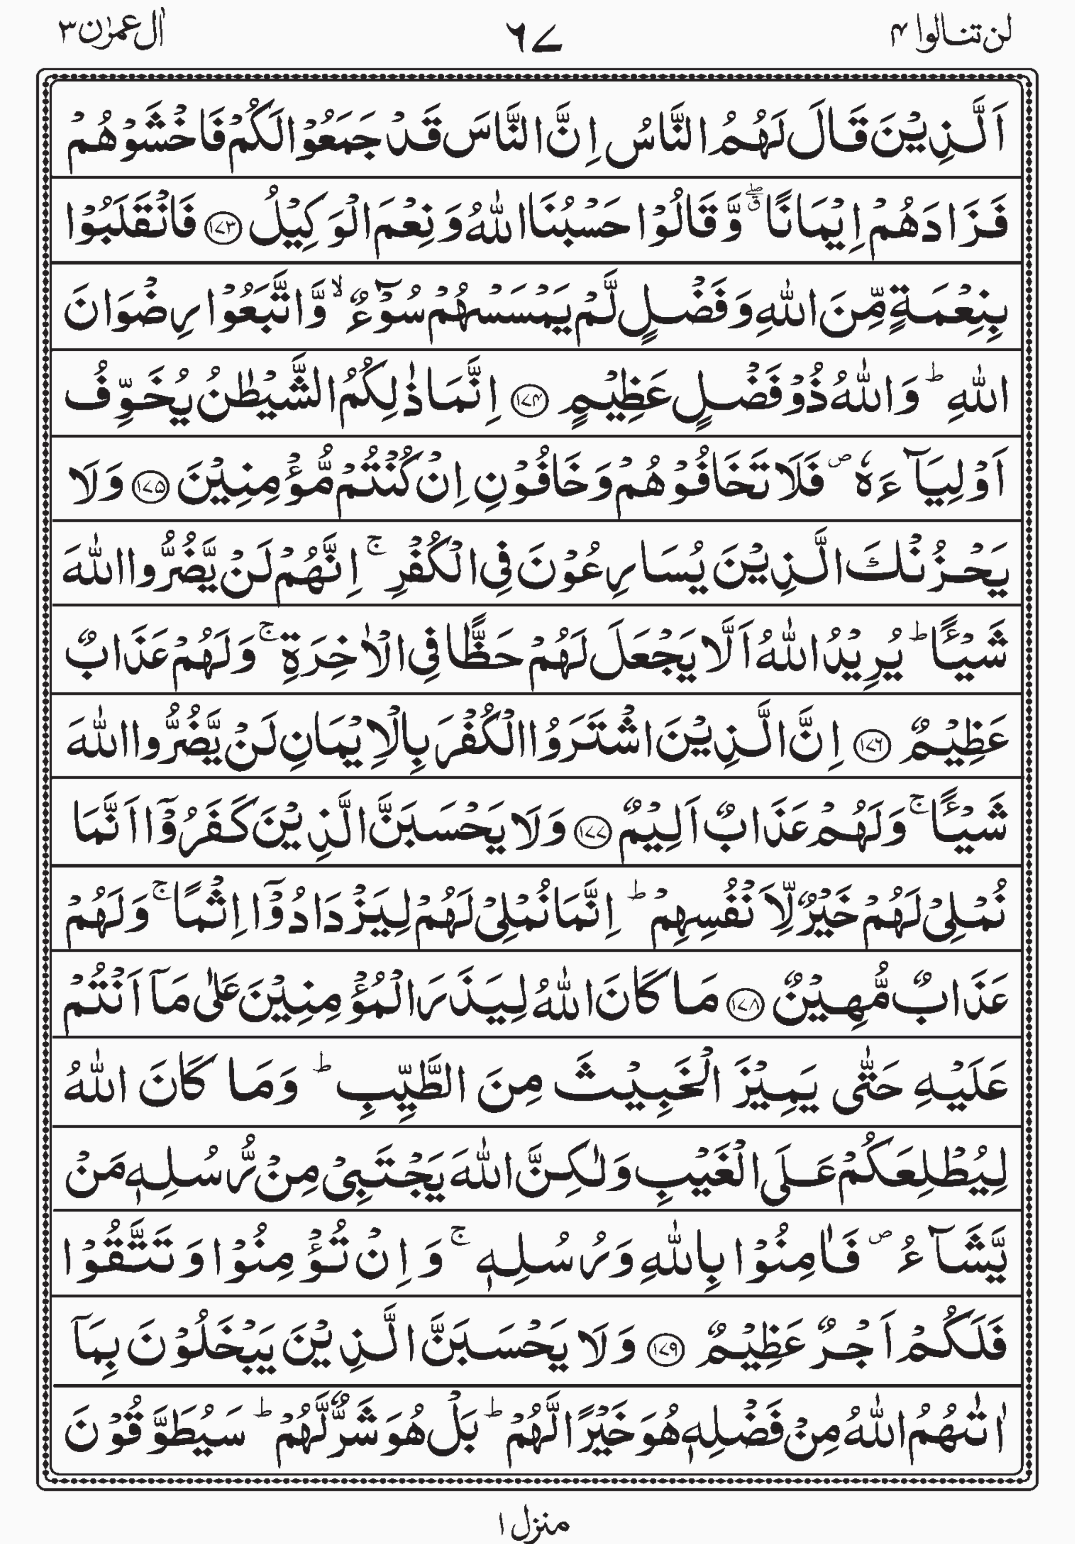 لن تنالوا ۴ ۶۷ اٰل عمرٰن ۳
اَلَّذِيْنَ قَالَ لَهُمُ النَّاسُ اِنَّ النَّاسَ قَدْ جَمَعُوْا لَكُمْ فَاخْشَوْهُمْ
فَزَادَهُمْ اِيْمَانًا ۖۗ وَّ قَالُوْا حَسْبُنَا اللّٰهُ وَ نِعْمَ الْوَكِيْلُ ﴿۱۷۳﴾ فَانْقَلَبُوْا
بِنِعْمَةٍ مِّنَ اللّٰهِ وَ فَضْلٍ لَّمْ يَمْسَسْهُمْ سُوْٓءٌ ۙ وَّ اتَّبَعُوْا رِضْوَانَ
اللّٰهِ ؕ وَ اللّٰهُ ذُوْ فَضْلٍ عَظِيْمٍ ﴿۱۷۴﴾ اِنَّمَا ذٰلِكُمُ الشَّيْطٰنُ يُخَوِّفُ
اَوْلِيَآءَهٗ ۪ فَلَا تَخَافُوْهُمْ وَ خَافُوْنِ اِنْ كُنْتُمْ مُّؤْمِنِيْنَ ﴿۱۷۵﴾ وَ لَا
يَحْزُنْكَ الَّذِيْنَ يُسَارِعُوْنَ فِي الْكُفْرِ ۚ اِنَّهُمْ لَنْ يَّضُرُّوا اللّٰهَ
شَيْـًٔا ؕ يُرِيْدُ اللّٰهُ اَلَّا يَجْعَلَ لَهُمْ حَظًّا فِي الْاٰخِرَةِ ۚ وَ لَهُمْ عَذَابٌ
عَظِيْمٌ ﴿۱۷۶﴾ اِنَّ الَّذِيْنَ اشْتَرَوُا الْكُفْرَ بِالْاِيْمَانِ لَنْ يَّضُرُّوا اللّٰهَ
شَيْـًٔا ۚ وَ لَهُمْ عَذَابٌ اَلِيْمٌ ﴿۱۷۷﴾ وَ لَا يَحْسَبَنَّ الَّذِيْنَ كَفَرُوْۤا اَنَّمَا
نُمْلِيْ لَهُمْ خَيْرٌ لِّاَنْفُسِهِمْ ؕ اِنَّمَا نُمْلِيْ لَهُمْ لِيَزْدَادُوْۤا اِثْمًا ۚ وَ لَهُمْ
عَذَابٌ مُّهِيْنٌ ﴿۱۷۸﴾ مَا كَانَ اللّٰهُ لِيَذَرَ الْمُؤْمِنِيْنَ عَلٰى مَاۤ اَنْتُمْ
عَلَيْهِ حَتّٰى يَمِيْزَ الْخَبِيْثَ مِنَ الطَّيِّبِ ؕ وَ مَا كَانَ اللّٰهُ
لِيُطْلِعَكُمْ عَلَى الْغَيْبِ وَ لٰكِنَّ اللّٰهَ يَجْتَبِيْ مِنْ رُّسُلِهٖ مَنْ
يَّشَآءُ ۪ فَاٰمِنُوْا بِاللّٰهِ وَ رُسُلِهٖ ۚ وَ اِنْ تُؤْمِنُوْا وَ تَتَّقُوْا
فَلَكُمْ اَجْرٌ عَظِيْمٌ ﴿۱۷۹﴾ وَ لَا يَحْسَبَنَّ الَّذِيْنَ يَبْخَلُوْنَ بِمَاۤ
اٰتٰىهُمُ اللّٰهُ مِنْ فَضْلِهٖ هُوَ خَيْرًا لَّهُمْ ؕ بَلْ هُوَ شَرٌّ لَّهُمْ ؕ سَيُطَوَّقُوْنَ
منزل ۱